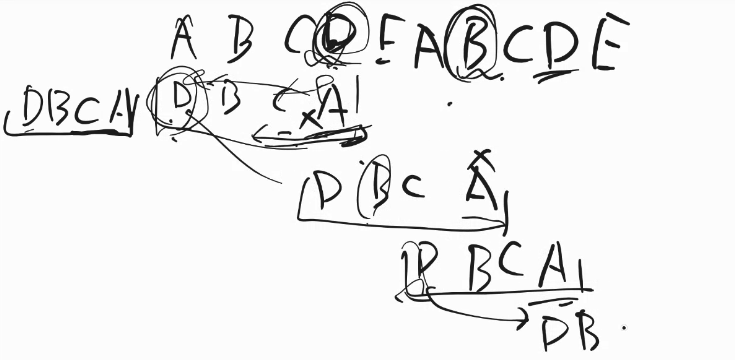 A B C D E A B C D E
DBCA D B C A
D B C A
D B C A
D B